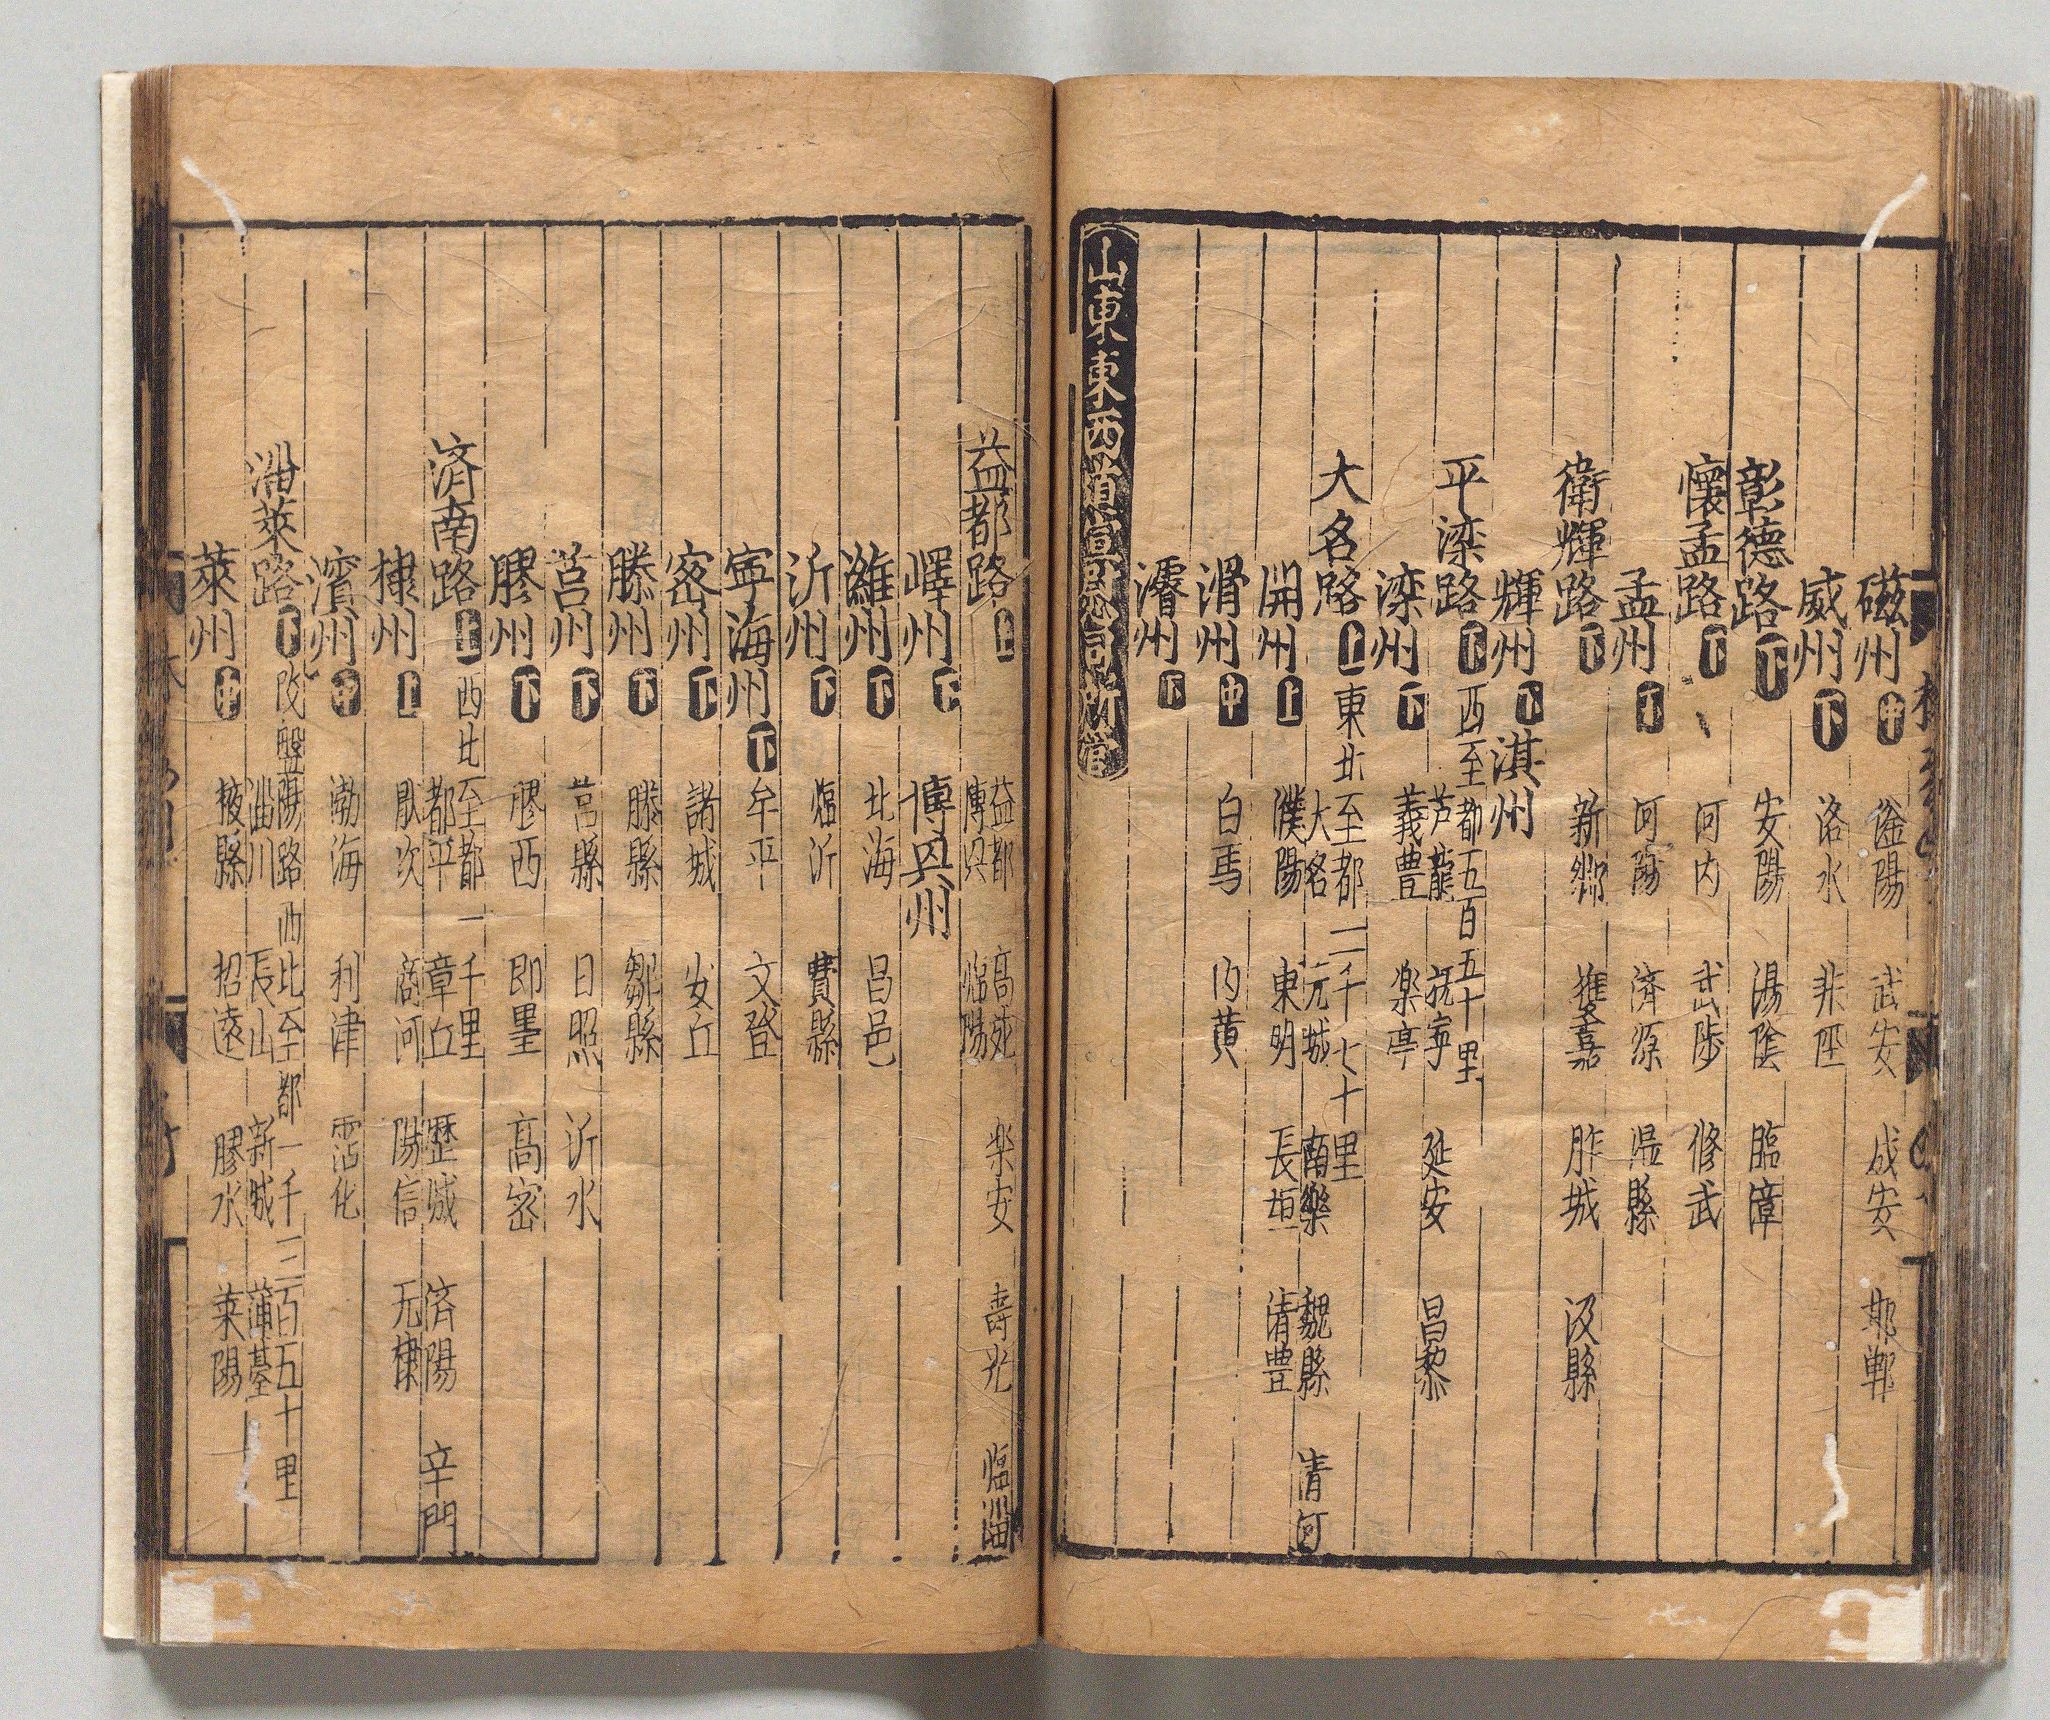 磁州 中 滏陽 武安 成安 邯鄲
威州 下 洛水 非陘
彰德路 下 安陽 湯陰 臨漳
懷孟路 下 河内 武陟 修武
孟州 下 河陽 済源 温縣
衛輝路 下 新鄉 獲嘉 胙城 汲縣
輝州 下 淇州
平滦路 下 西至都五百五十里 芦龍 抚寧 延安 昌黎
滦州 下 義豊 楽亭
大名路 上 東北至都二千七十里 大名 元城 南樂 魏縣 清河
開州 上 濮陽 東明 長垣 清豊
滑州 中 白馬 内黄
濬州 下
山東東西道宣慰司所管
益都路 上 益都 高苑 楽安 壽光 临淄
博兴 临陽
嶧州 下 博兴州
濰州 下 北海 昌邑
沂州 下 临沂 費縣
寧海州 下 牟平 文登
密州 下 諸城 安丘
滕州 下 滕縣 鄒縣
莒州 下 莒縣 日照 沂水
膠州 下 膠西 即墨 高密
済南路 上 西北至都一千里 都平 章丘 歷城 済陽 辛門
棣州 上 厭次 商河 陽信 无棣
濱州 中 渤海 利津 霑化
淄萊路 下 改盤陽路 西北至都一千三百五十里 淄川 長山 新城 蒲䑓
萊州 中 掖縣 招遠 膠水 萊陽